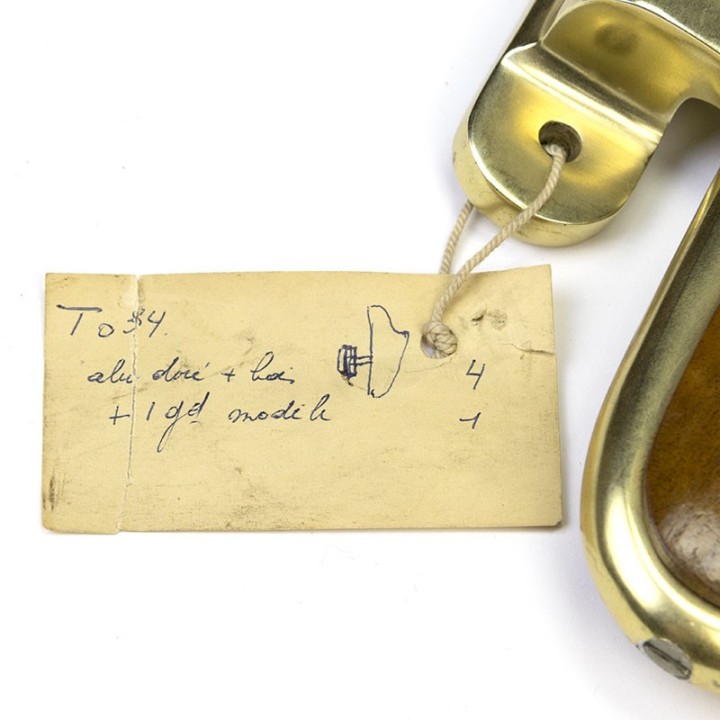 To 34.
alu doré + bois 4
+ 1 gd modèle 1